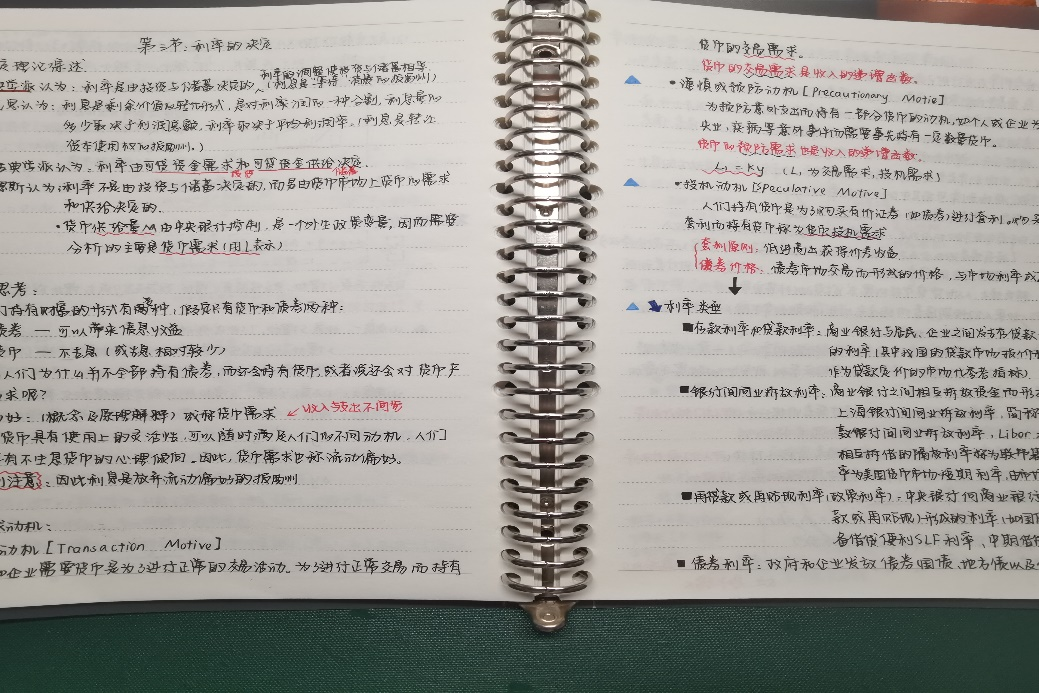 第三节：利率的决定
定理论综述
利率的调整使投资与储蓄相等
认为：利率是由投资与储蓄决定的。(利息是等待、消费的报酬)
思认为：利息是剩余价值的转化形式，是对利润的一种分割，利息量的
多少取决于利润总额，利率取决于平均利润率。(利息是转让
货币使用权的报酬。)
古典学派认为：利率由可贷资金需求和可贷资金供给决定。
投资 储蓄
斯认为：利率不是由投资与储蓄决定的，而是由货币市场上货币的需求
和供给决定的.
·货币供给量由中央银行控制，是一个外生政策变量，因而需要
分析的主要是货币需求(用L表示)
思考：
们持有财富的形式有两种，假定只有货币和债券两种：
债券 — 可以带来债息收益
货币 — 不生息(或生息相对较少)
人们为什么并不全部持有债券，而还会持有货币，或者说还会对货币产
求呢?
好：(概念及原理解释) 或称货币需求 ↙收入与支出不同步
货币具有使用上的灵活性，可以随时满足人们的不同动机，人们
有不生息货币的心理倾向。因此，货币需求也称流动偏好。
注意：因此利息是放弃流动偏好的报酬
求动机：
动机[Transaction Motive]
和企业需要货币是为了进行正常的交易活动。为了进行正常交易而持有
货币的交易需求。
货币的交易需求是收入的递增函数。
·谨慎或预防动机[Precautionary Motie]
为预防意外支出而持有一部分货币的动机，如个人或企业为
失业，疾病等意外事件而需要事先持有一定数量货币。
货币的预防需求也是收入的递增函数。
L₁=ky (L₁为交易需求，投机需求)
·投机动机[Speculative Motive]
套利而持有货币称为货币投机需求
套利原则：低进高出获得价差收益.
债券价格：债券市场交易而形成的价格，与市场利率成
利率类型
■存款利率和贷款利率：商业银行与居民、企业之间发放存贷款
的利率(其中我国的贷款市场报价利
作为贷款定价的市场化参考指标).
■银行间同业拆放利率：商业银行之间相互拆放资金而形
上海银行间同业拆放利率，简称
敦银行间同业拆放利率，Libor.
相互拆借的隔夜利率称为联邦基
率为美国货币市场短期利率，由市
■再贷款或再贴现利率(政策利率)：中央银行向商业银行
款或再贴现)形成的利率(如国
备借贷便利SLF利率，中期借
■债券利率：政府和企业发放债券国债、地方债以及